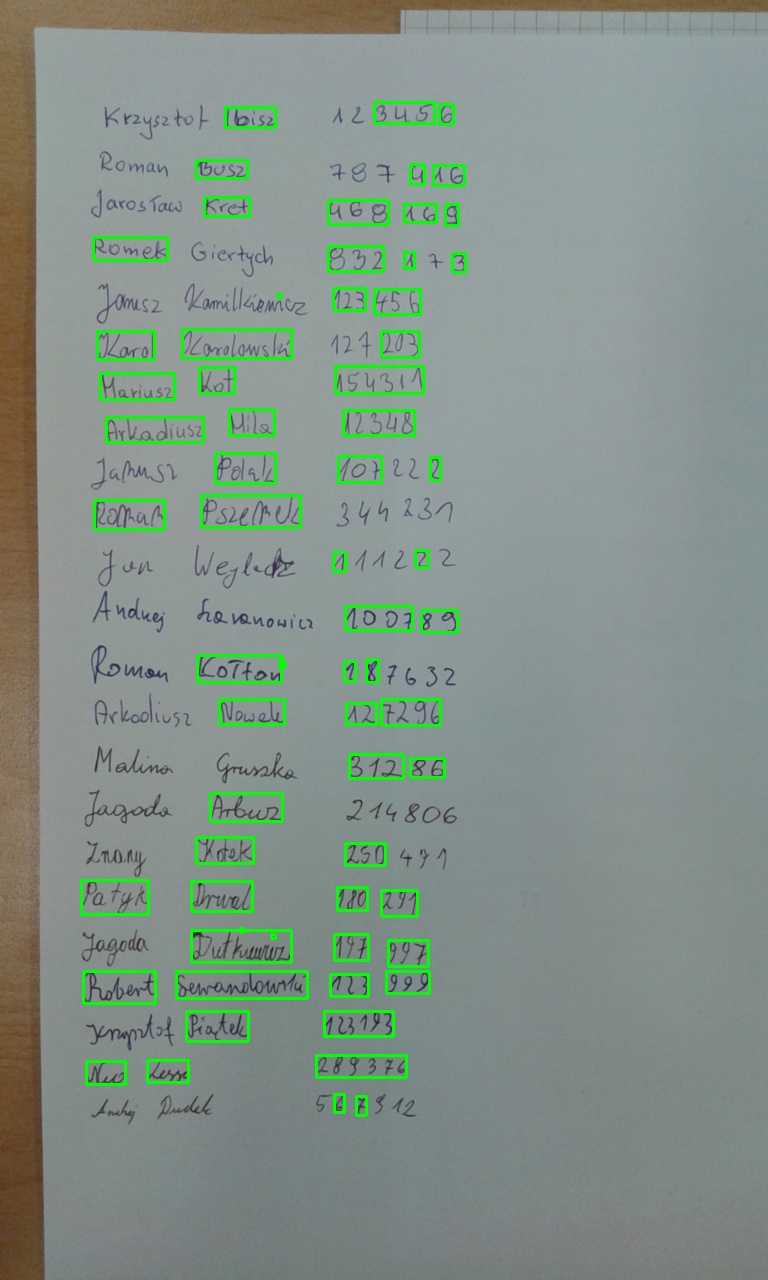 Krzysztof Ibisz 123456
Roman Busz 787 416
Jarosław Kret 468 169
Romek Giertych 832 173
Janusz Kamilkiewicz 123 456
Karol Karolowski 127 203
Mariusz Kot 154311
Arkadiusz Mila 12348
Janusz Polak 107222
Roman Pszemek 344 231
Jan 1111222
Andrzej 100789
Roman Kołton 187632
Arkadiusz Nowak 127296
Malina Gruszka 312 86
Jagoda Arbuz 214806
Znany Kotek 250 491
Patyk Drwal 180 291
Jagoda Dutkiewicz 197 997
Robert Lewandowski 123 999
Krzysztof Piątek 123193
289376
Andrzej Dudek 567912